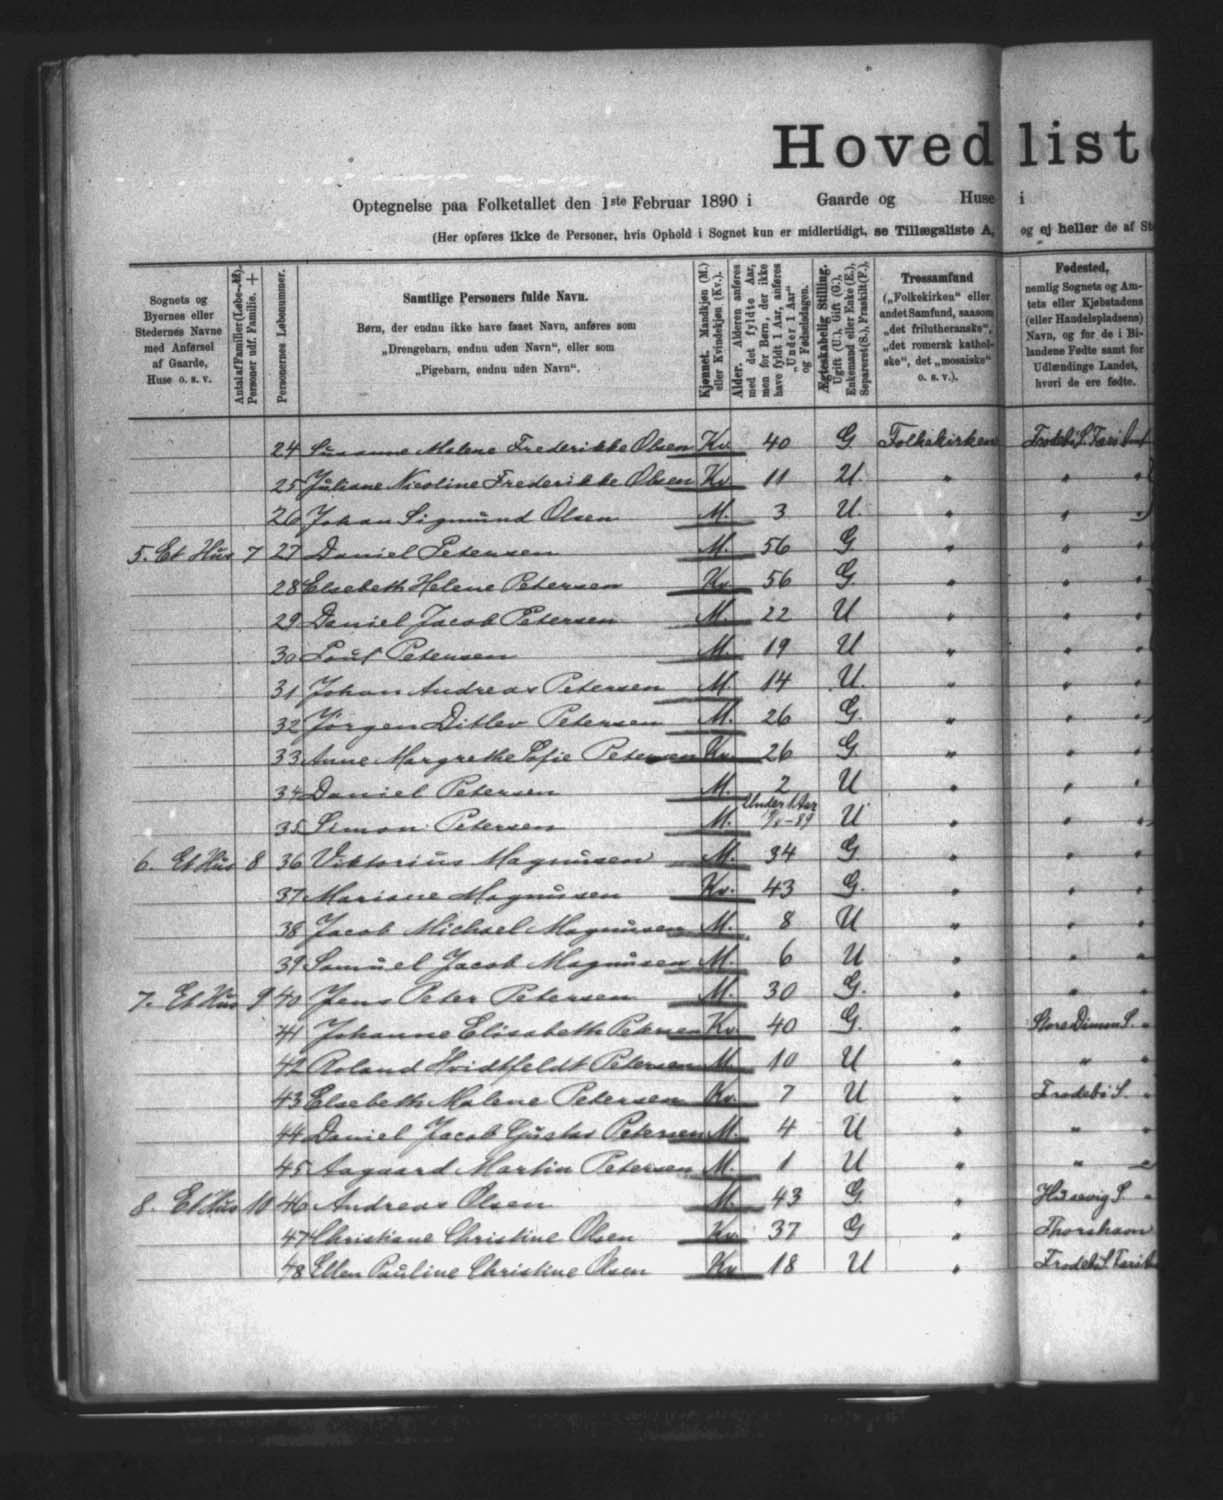 Hovedliste
Optegnelse paa Folketallet den 1ste Februar 1890 i Gaarde og Huse i
(Her opføres ikke de Personer, hvis Ophold i Sognet kun er midlertidigt, se Tillægsliste A, og ej heller de af
Sognets og Byernes eller Stedernes Navne med Anførsel af Gaarde, Huse o. s. v.
Antal af Familier (Løbe-№). Personer udf. Familie. +
Personernes Løbenummer.
Samtlige Personers fulde Navn.
Børn, der endnu ikke have faaet Navn, anføres som
„Drengebarn, endnu uden Navn“, eller som
„Pigebarn, endnu uden Navn“.
Kjønnet. Mandkjøn (M.) eller Kvindekjøn (Kv.).
Alder. Alderen anføres med det fyldte Aar, men for Børn, der ikke have fyldt 1 Aar, anføres „Under 1 Aar“ og Fødselsdagen.
Ægteskabelig Stilling. Ugift (U.), Gift (G.), Enkemand eller Enke (E.), Separeret (S.), Fraskilt (F.).
Trossamfund („Folkekirken“ eller andet Samfund, saasom „det frilutheranske“, „det romersk katholske“, det „mosaiske“ o. s. v.).
Fødested, nemlig Sognets og Amtets eller Kjøbstadens (eller Handelspladsens) Navn, og for de i Bilandene Fødte samt for Udlændinge Landet, hvori de ere fødte.
24 Susanne Malene Frederikke Olsen Kv. 40 G Folkekirken Frodebø S.
25 Juliane Nicoline Frederikke Olsen Kv. 11 U. " " "
26 Johan Sigmund Olsen M. 3 U. " " "
5. Et Hus 7 27 Daniel Petersen M. 56 G " " "
28 Elsebeth Helene Petersen Kv. 56 G. " " "
29 Daniel Jacob Petersen M. 22 U " " "
30 Poul Petersen M. 19 U " " "
31 Johan Andreas Petersen M. 14 U. " " "
32 Jørgen Ditlev Petersen M. 26 G. " " "
33 Anne Margrethe Sofie Petersen Kv. 26 G. " " "
34 Daniel Petersen M. 2 U " " "
35 Simon Petersen M. Under 1 Aar U " " "
6. Et Hus 8 36 Viktorius Magnusen M. 34 G. " " "
37 Mariane Magnusen Kv. 43 G. " " "
38 Jacob Michael Magnusen M. 8 U " " "
39 Samuel Jacob Magnusen M. 6 U " " "
7. Et Hus 9 40 Jens Peter Petersen M. 30 G. " " "
41 Johanne Elisabeth Petersen Kv. 40 G. " Store Dimon S. "
42 Roland Hvidtfeldt Petersen M. 10 U " " "
43 Elsebeth Malene Petersen Kv. 7 U " Frodebø S. "
44 Daniel Jacob Gustav Petersen M. 4 U " " "
45 Aagaard Martin Petersen M. 1 U " " "
8. Et Hus 10 46 Andreas Olsen M. 43 G " Husevig S. "
47 Christiane Christine Olsen Kv. 37 G " Thorshavn
48 Ellen Pauline Christine Olsen Kv. 18 U " Frodebø S.